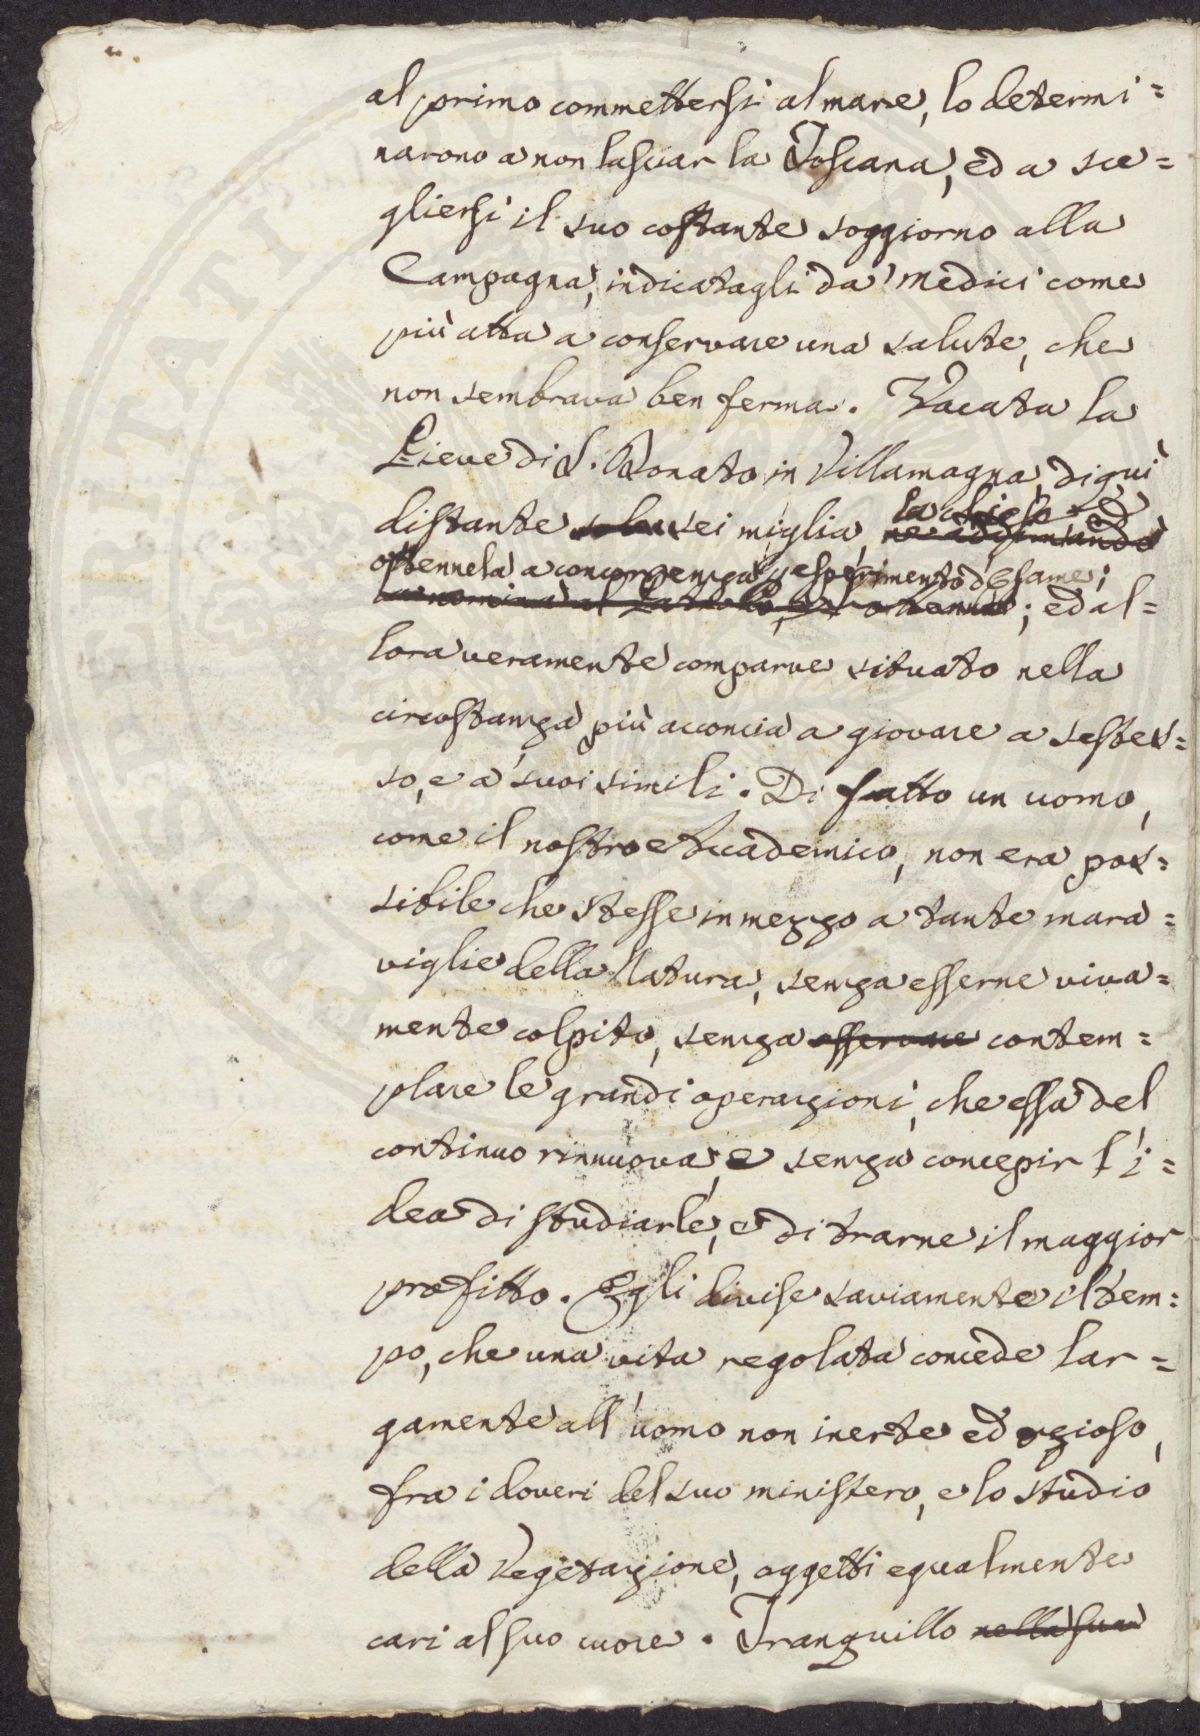 al primo commettersi al mare, lo determi=
narono a non lasciar la Toscana, ed a sce=
gliersi il suo costante soggiorno alla
Campagna, indicatagli da' Medici come
più atta a conservare una salute, che
non sembrava ben ferma. Vacata la
Pieve di S. Donato in Villamagna, di qui
la chiese ed
distante solo sei miglia, ne addimandò
ottennela a concorrenza, e sperimento d'Esame;
la nomina al Patrono, ed ottenne; ed al=
lora veramente comparve situato nella
circostanza più acconcia a giovare a sestes=
so, e a' suoi simili. Di fatto un uomo,
come il nostro Accademico, non era pos=
sibile che stesse in mezzo a tante mara=
viglie della Natura, senza esserne viva=
mente colpito, senza osservare contem=
plare le grandi operazioni, che essa del
continuo rinnuova, e senza concepir l'i=
dea di studiarle, e di trarne il maggior
profitto. Egli divise saviamente il tem=
po, che una vita regolata concede lar=
gamente all'uomo non inerte ed ozioso,
fra i doveri del suo ministero, e lo studio
della Vegetazione, oggetti egualmente
cari al suo cuore. Tranquillo nella sua